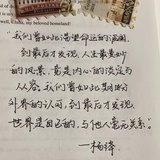 ll, my beloved homeland!
"我们曾如此渴望命运的波澜
到最后才发现，人生最曼妙
的风景，竟是内心的淡定与
从容。我们曾如此期盼
外界的认可，到最后才发现，
世界是自己的，与他人毫无关系"
—杨绛